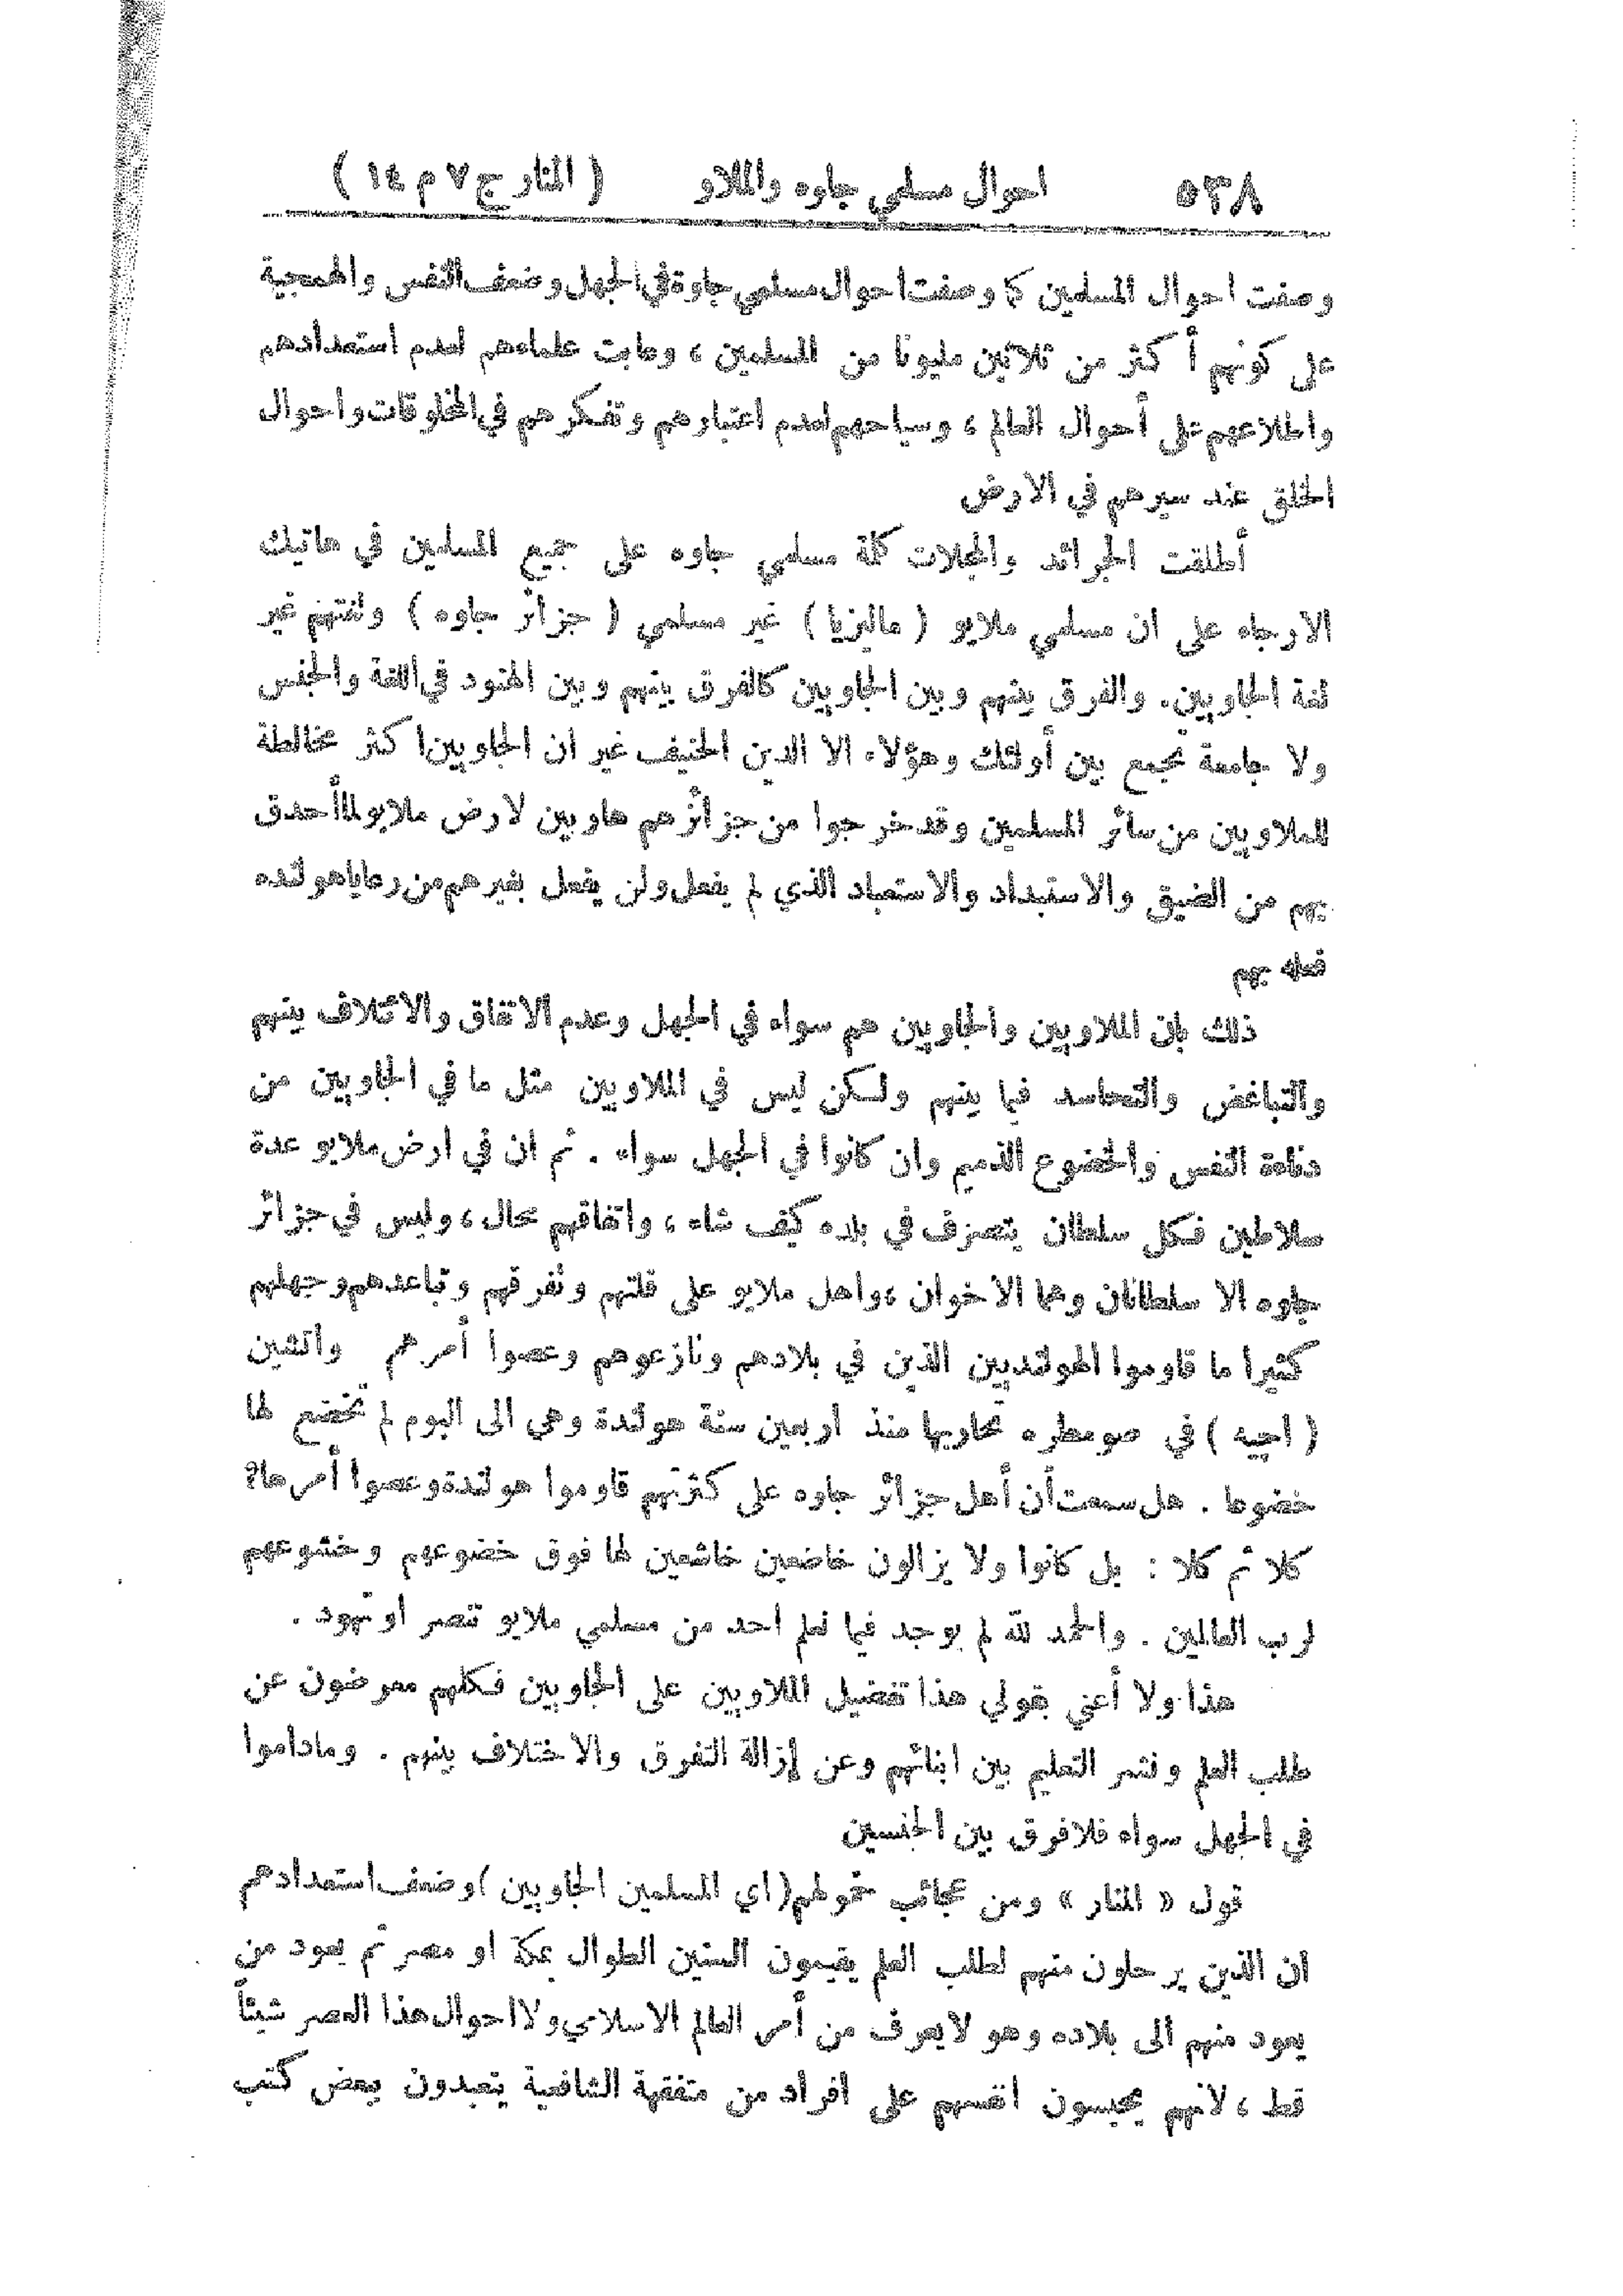 ٥٣٨ احوال مسلمي جاوه والملاو ( المنار ج ٧ م ١٤ )
وصفت احوال المسلمين كما وصفت احوال مسلمي جاوة في الجهل وضعف النفس والهمجية
على كونهم أكثر من ثلاثين مليونا من المسلمين ، وعابت علماءهم لعدم استعدادهم
واطلاعهم على أحوال العالم ، وسياحهم لعدم اعتبارهم وتفكرهم في المخلوقات واحوال
الخلق عند سيرهم في الارض
أطلقت الجرائد والمجلات كلمة مسلمي جاوه على جميع المسلمين في هاتيك
الارجاء على ان مسلمي ملايو ( ماليزيا ) غير مسلمي ( جزائر جاوه ) ولغتهم غير
لغة الجاويين. والفرق بينهم وبين الجاويين كالفرق بينهم وبين الهنود في اللغة والجنس
ولا جامعة تجمع بين أولئك وهؤلاء الا الدين الحنيف غير ان الجاويين اكثر مخالطة
للملاويين من سائر المسلمين وقد خرجوا من جزائرهم هاوبين لارض ملايو لما أحدق
بهم من الضيق والاستبداد والاستعباد الذي لم يفعل ولن يفعل بغيرهم من رعايا هولنده
فعله بهم
ذلك بان الملاويين والجاويين هم سواء في الجهل وعدم الاتفاق والائتلاف بينهم
والتباغض والتحاسد فيما بينهم ولكن ليس في الملاويين مثل ما في الجاويين من
دناءة النفس والخضوع الذميم وان كانوا في الجهل سواء . ثم ان في ارض ملايو عدة
سلاطين فكل سلطان يتصرف في بلده كيف شاء ، واتفاقهم محال ، وليس في جزائر
جاوه الا سلطانان وهما الاخوان ، واهل ملايو على قلتهم وتفرقهم وتباعدهم وجهلهم
كثيرا ما قاوموا الهولنديين الذين في بلادهم ونازعوهم وعصوا أمرهم واتشين
( اجيه ) في صومطره تحاربها منذ اربعين سنة هولندة وهي الى اليوم لم تخضع لها
خضوعا . هل سمعت أن أهل جزائر جاوه على كثرتهم قاوموا هولندة وعصوا أمرها؟
كلا ثم كلا : بل كانوا ولا يزالون خاضعين خاشعين لها فوق خضوعهم وخشوعهم
لرب العالمين . والحمد لله لم يوجد فيما نعلم احد من مسلمي ملايو تنصر او تهود .
هذا ولا أعني بقولي هذا تفضيل الملاويين على الجاويين فكلهم معرضون عن
طلب العلم ونشر التعليم بين ابنائهم وعن إزالة التفرق والاختلاف بينهم . وماداموا
في الجهل سواء فلا فرق بين الجنسين
قول « المنار » ومن عجائب خمولهم ( اي المسلمين الجاويين ) وضعف استعدادهم
ان الذين يرحلون منهم لطلب العلم يقيمون السنين الطوال بمكة او مصر ثم يعود من
يعود منهم الى بلاده وهو لا يعرف من أمر العالم الاسلامي ولا احوال هذا العصر شيئاً
قط ، لانهم يحبسون انفسهم على افراد من متفقهة الشافعية يتعبدون ببعض كتب